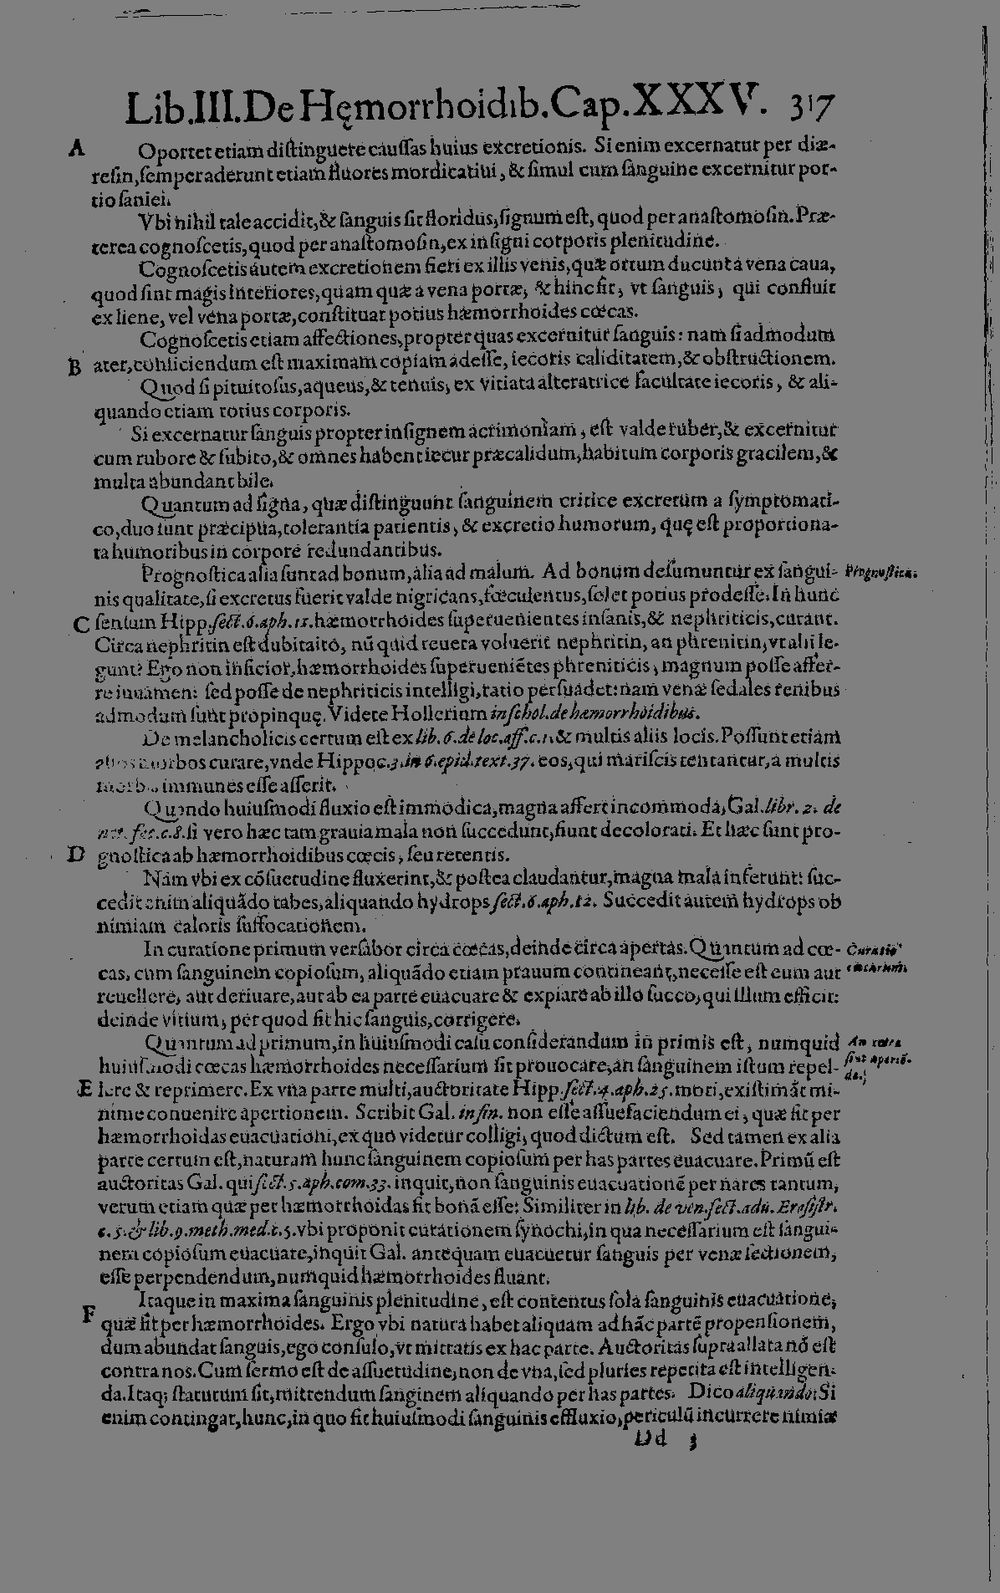 Lib.III.De Hęmorrhoidib.Cap.XXXV. 317
A Oportet etiam distinguere caussas huius excretionis. Si enim excernatur per diæ-
resin, semper aderunt etiam fluores mordicatiui, & simul cum sanguine excernitur por-
tio saniei.
Vbi nihil tale accidit, & sanguis sit floridus, signum est, quod per anastomosin. Præ-
terea cognoscetis, quod per anastomosin, ex insigni corporis plenitudine.
Cognoscetis autem excretionem fieri ex illis venis, quæ ortum ducunt à vena caua,
quod sint magis interiores, quam quæ a vena portæ, & hinc fit, vt sanguis, qui confluit
ex liene, vel vena portæ, constituat potius hæmorrhoides cœcas.
Cognoscetis etiam affectiones, propter quas excernitur sanguis: nam si admodum
B ater, coniiciendum est maximam copiam adesse, iecoris caliditatem, & obstructionem.
Quod si pituitosus, aqueus, & tenuis, ex vitiata alteratrice facultate iecoris, & ali-
quando etiam totius corporis.
Si excernatur sanguis propter insignem acrimoniam, est valde ruber, & excernitur
cum rubore & subito, & omnes habent iecur præcalidum, habitum corporis gracilem, &
multa abundant bile.
Quantum ad signa, quæ distinguunt sanguinem critice excretum a symptomati-
co, duo sunt præcipua, tolerantia patientis, & excretio humorum, quę est proportiona-
ta humoribus in corpore redundantibus.
Prognostica alia sunt ad bonum, alia ad malum. Ad bonum desumuntur ex sangui- Prognostica.
nis qualitate, si excretus fuerit valde nigricans, fœculentus, solet potius prodesse. In hunc
C sensum Hipp. sect.6.aph.11. hæmorrhoides superuenientes insanis, & nephriticis, curant.
Circa nephritin est dubitaitó, nũ quid reuera voluerit nephritin, an phrenitin, vt alii le-
gunt? Ego non inficior, hæmorrhoides superueniẽtes phreniticis, magnum posse affer-
re iuuamen: sed posse de nephriticis intelligi, ratio persuadet: nam venæ sedales renibus
admodum sunt propinquę. Videte Hollerium in schol. de hæmorrhoidibus.
De melancholicis certum est ex lib.6. de loc.aff.c.1. & multis aliis locis. Possunt etiam
alios morbos curare, vnde Hippoc.3.in 6.epid.text.37. eos, qui mariscis tentantur, a multis
morbis immunes esse asserit.
Quando huiusmodi fluxio est immodica, magna affert incommoda, Gal. libr. 2. de
nat. fac.c.8. si vero hæc tam grauia mala non succedunt, fiunt decolorati. Et hæc sunt pro-
D gnostica ab hæmorrhoidibus cœcis, seu retentis.
Nam vbi ex cõsuetudine fluxerint, & postea claudantur, magna mala inferunt: suc-
cedit enim aliquãdo tabes, aliquando hydrops sect.6.aph.12. Succedit autem hydrops ob
nimiam caloris suffocationem.
In curatione primum versabor circa cœcas, deinde circa apertas. Quantum ad cœ- Curatio
cas, cum sanguinem copiosum, aliquãdo etiam prauum contineant, necesse est eum aut cœcarum.
reuellere, aut deriuare, aut ab ea parte euacuare & expiare ab illo succo, qui illum efficit:
deinde vitium, per quod fit hic sanguis, corrigere.
Quantum ad primum, in huiusmodi casu considerandum in primis est, numquid An cœcæ
huiusmodi cœcas hæmorrhoides necessarium sit prouocare, an sanguinem istum repel- sint aperiẽ-
dæ.
E lere & reprimere. Ex vna parte multi, auctoritate Hipp. sect.4.aph.25. moti, existimãt mi-
nime conuenire apertionem. Scribit Gal. in fin. non esse assuefaciendum ei, quæ fit per
hæmorrhoidas euacuationi, ex quo videtur colligi, quod dictum est. Sed tamen ex alia
parte certum est, naturam hunc sanguinem copiosum per has partes euacuare. Primũ est
auctoritas Gal. qui sect.5.aph.com.33. inquit, non sanguinis euacuationẽ per nares tantum,
verum etiam quæ per hæmorrhoidas fit bonã esse: Similiter in lib. de ven.sect.adu. Erasistr.
c.5. & lib.9.meth.med.c.5. vbi proponit curationem synochi, in qua necessarium est sangui-
nem copiosum euacuate, inquit Gal. antequam euacuetur sanguis per venæ sectionem,
esse perpendendum, numquid hæmorrhoides fluant.
Itaque in maxima sanguinis plenitudine, est contentus sola sanguinis euacuatione,
F quæ fit per hæmorrhoides. Ergo vbi natura habet aliquam ad hãc partẽ propensionem,
dum abundat sanguis, ego consulo, vt mittatis ex hac parte. Auctoritas supra allata nõ est
contra nos. Cum sermo est de assuetudine, non de vna, sed pluries repetita est intelligen-
da. Itaq; statutum sit, mittendum sanginem aliquando per has partes. Dico aliquando: Si
enim contingat, hunc, in quo fit huiusmodi sanguinis effluxio, periculũ incurrere nimiæ
Dd 3